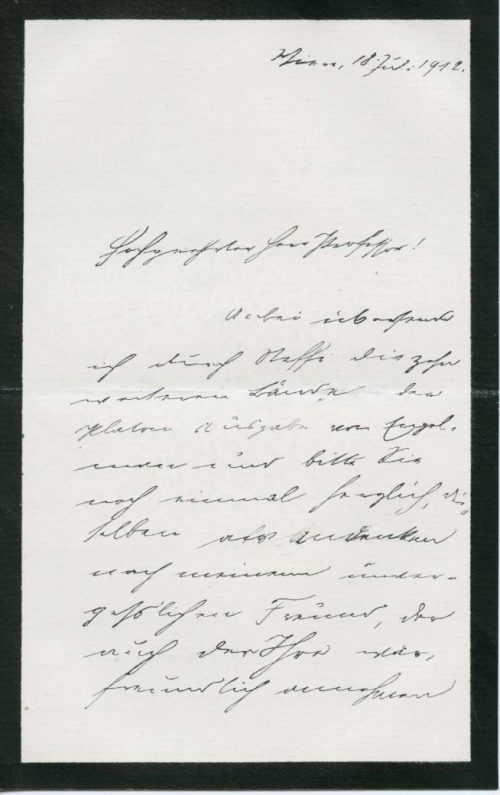 Wien, 18. Jul. 1912.
Hochgeehrter Herr Professor!
Anbei übersende
ich durch Steffi die zehn
weiteren Bände der
Platon Ausgabe von Engel-
mann und bitte Sie
noch einmal herzlich, die-
selben als Andenken
nach meinem unver-
gesslichen Freund, der
auch der Ihre war,
freundlich annehmen